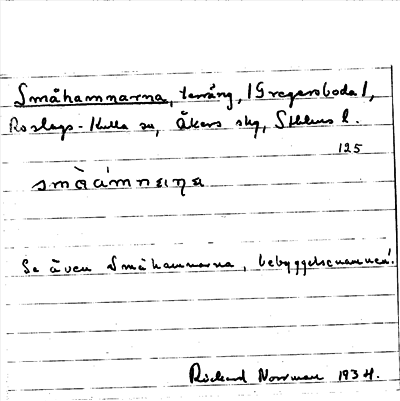 Småhamnarna, terräng, /Gregersboda/,
Roslags-Kulla sn, Åkers skg, Sthlms l.
125
Se även Småhamnarna, bebyggelsenamnen!
Rickard Norrman 1934.